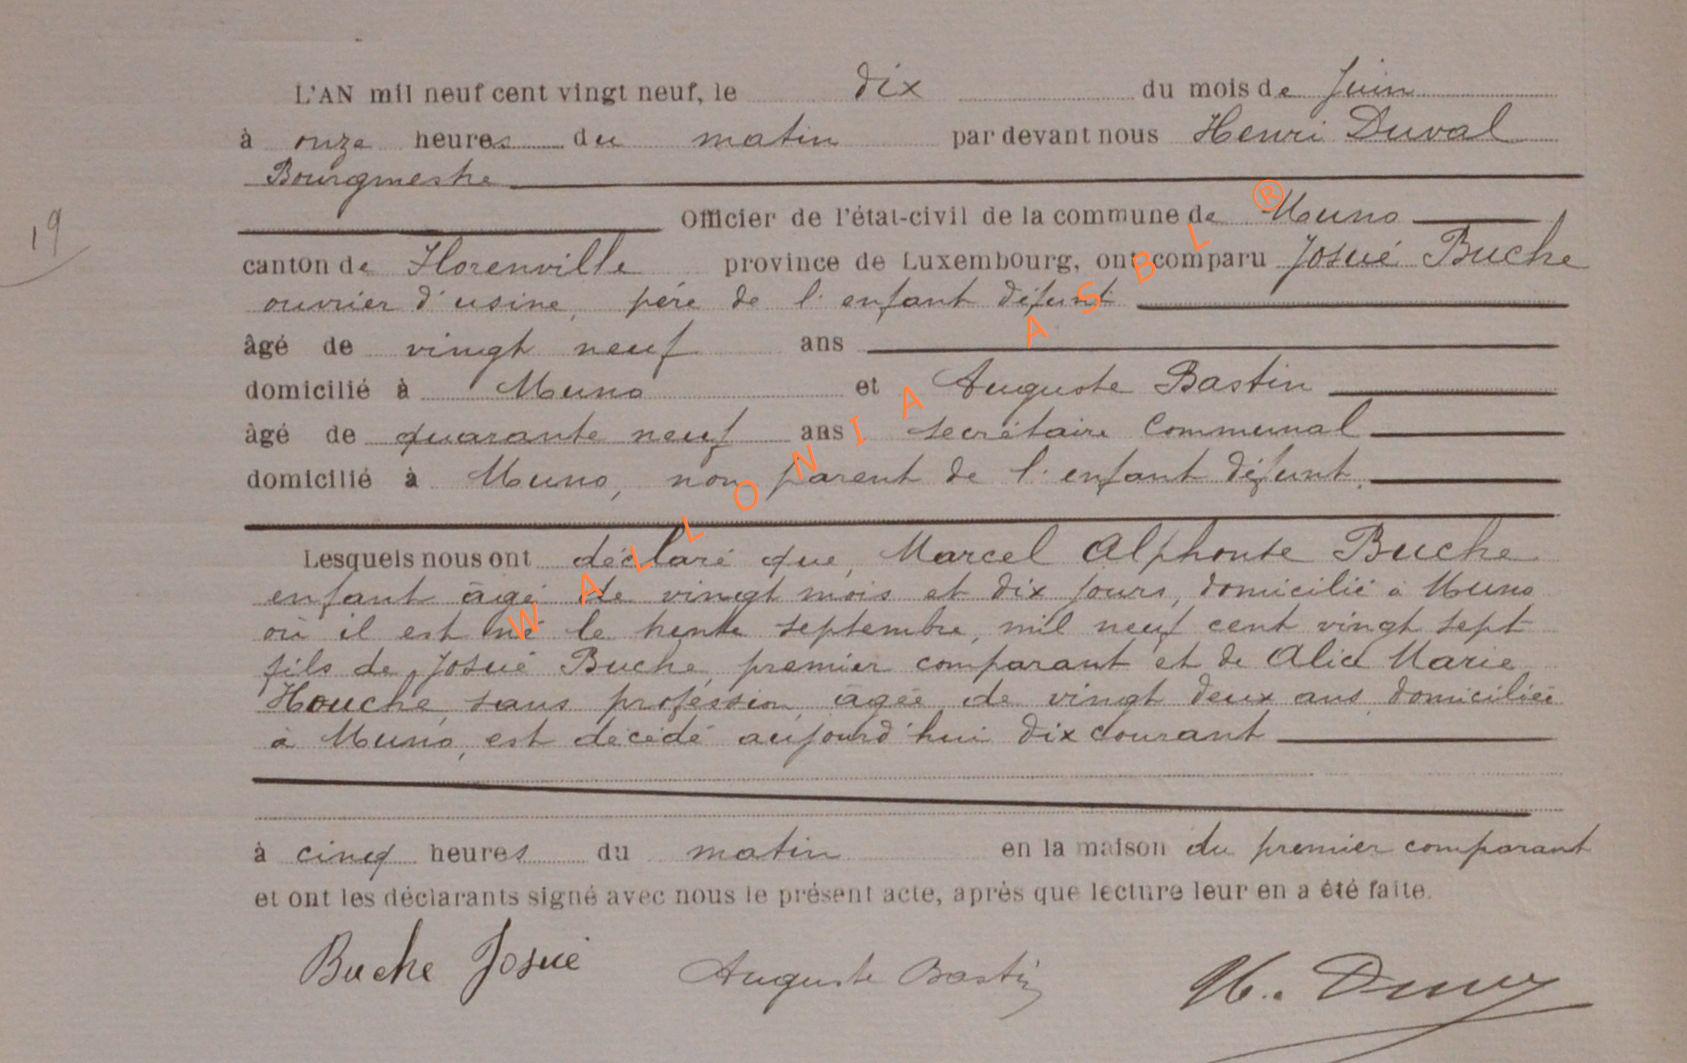 L'AN mil neuf cent vingt neuf, le dix du mois de Juin
à onze heures du matin par devant nous Henri Duval
Bourgmestre
Officier de l'état-civil de la commune de Muno
19
canton de Florenville province de Luxembourg, ont comparu Josué Buche
ouvrier d'usine, père de l'enfant défunt
âgé de vingt neuf ans
domicilié à Muno et Auguste Bastin
âgé de quarante neuf ans secrétaire communal
domicilié à Muno, non parent de l'enfant défunt.
Lesquels nous ont déclaré que, Marcel Alphonse Buche
enfant âgé de vingt mois et dix jours, domicilié à Muno
où il est né le trente septembre, mil neuf cent vingt sept
fils de Josué Buche, premier comparant et de Alice Marie
Houche, sans profession, âgée de vingt deux ans, domiciliée
à Muno, est décédé aujourd'hui dix courant
à cinq heures du matin en la maison du premier comparant
et ont les déclarants signé avec nous le présent acte, après que lecture leur en a été faite.
Buche Josué Auguste Bastin H. Duval
WALLONIA ASBL ®